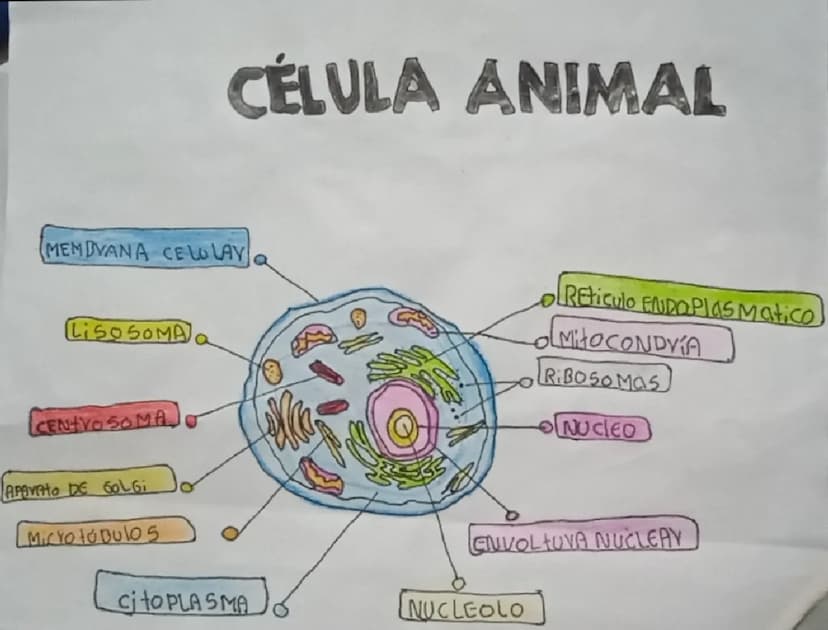 CÉLULA ANIMAL
MEMBVANA CELULAV
LISOSOMA
CENtVOSOMA
APAVAtO DE GOLGi
MicVOtúBULOS
CitOPLASMA
REticulO ENDOPLASMAticO
MitOCONDVíA
RiBOSOMAS
NUCLEO
ENVOLtUVA NUCLEAV
NUCLEOLO